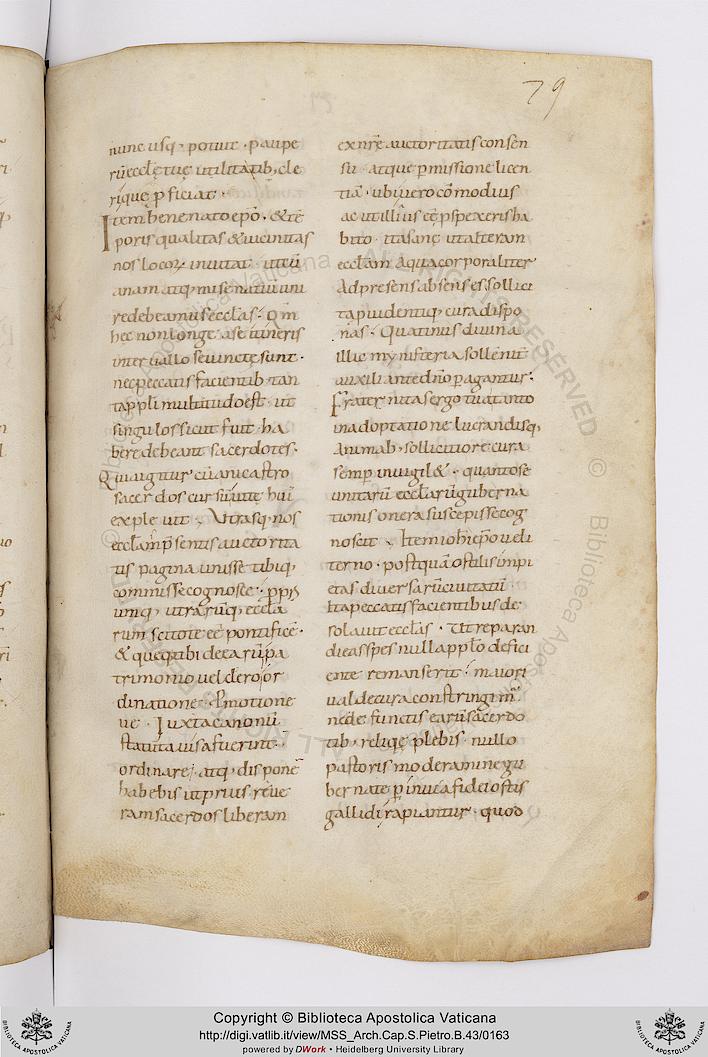 79
nunc usq; potuit · paupe
rū eccłę tuę utilitatib; cle
rique p ficiat ·
Item benenato epō · & tē
poris qualitas & uicinitas
nos locoꝝ inuitat · ut cū
anam atq; misenatiū uni
re debeamus ecclas · Qm̄
hec non longe a se itineris
interuallo seiuncte sunt ·
nec peccatis facientib; tan
ta ppli multitudo est · ut
singulos sicut fuit · ha
bere debeant sacerdotes ·
Quia igitur cūanę castro
sacerdos cursū uitę huī
expleuit · Utrasq; nos
ecclām psentis auctorita
tis pagina unisse tibiq;
commisisse cognosce ·
umq; utrarūq; eccła
rum scitote eē pontificē ·
& queq; tibi de earū pa
trimonio uel cleri or
dinatione · Pmotione
ue · Iuxta canonū
statuta uisa fuerint ·
ordinare · atq; disponē
habebis ut prius · reue
ra m sacerdos liberam
ex nrē auctoritatis consen
su · atque pmissione licen
tiā · ubi uero cōmodius
ac utillius eē pspexeris ha
bito · ita sanę ut alteram
ecclām a qua corporaliter
ad presens absens es sollici
ta puidentiq; cura dispo
nas · Quatinus diuina
illic mysteria sollenit
auxiliante dnō pagantur ·
Frater nitas ergo tua tanto
in adoptatione lucrandisq;
animab; sollicitiore cura
semp inuigil& · quanto se
unitarū ecclārū guberna
tionis onera suscepisse cog
noscit · Item iohi epō ueli
terno · postquā ostilis impi
etas diuersarū ciuitatū
Ita peccatis facientibus de
solauit ecclas · Ut reparan
di eas spes nulla pplo defici
ente remanserit · maiori
ual de cura constringim̄
ne defunctis earū sacerdo
tib; reliqę plebis · nullo
pastoris moderamine gu
bernate p inuia fidei ostis
gallidi rapiantur · quod
© Biblioteca Apostolica Vaticana · ALL RIGHTS RESERVED
Copyright © Biblioteca Apostolica Vaticana
http://digi.vatlib.it/view/MSS_Arch.Cap.S.Pietro.B.43/0163
powered by DWork • Heidelberg University Library